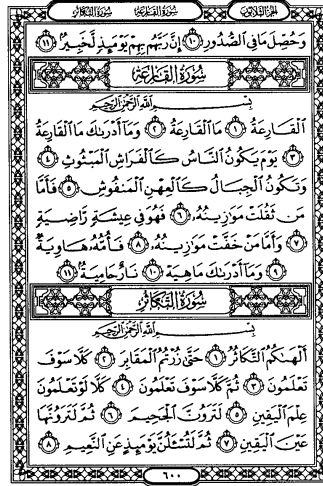 الجزء الثلاثون سورة القارعة سورة التكاثر
وَحُصِّلَ مَا فِي الصُّدُورِ ١٠ إِنَّ رَبَّهُم بِهِمْ يَوْمَئِذٍ لَّخَبِيرٌ ١١
سُورَةُ القَارِعَة
بِسْمِ اللَّهِ الرَّحْمَٰنِ الرَّحِيمِ
الْقَارِعَةُ ١ مَا الْقَارِعَةُ ٢ وَمَا أَدْرَىٰكَ مَا الْقَارِعَةُ
٣ يَوْمَ يَكُونُ النَّاسُ كَالْفَرَاشِ الْمَبْثُوثِ ٤
وَتَكُونُ الْجِبَالُ كَالْعِهْنِ الْمَنفُوشِ ٥ فَأَمَّا
مَن ثَقُلَتْ مَوَٰزِينُهُۥ ٦ فَهُوَ فِي عِيشَةٍ رَّاضِيَةٍ
٧ وَأَمَّا مَنْ خَفَّتْ مَوَٰزِينُهُۥ ٨ فَأُمُّهُۥ هَاوِيَةٌ
٩ وَمَا أَدْرَىٰكَ مَا هِيَهْ ١٠ نَارٌ حَامِيَةٌ ١١
سُورَةُ التَّكَاثُر
بِسْمِ اللَّهِ الرَّحْمَٰنِ الرَّحِيمِ
أَلْهَىٰكُمُ التَّكَاثُرُ ١ حَتَّىٰ زُرْتُمُ الْمَقَابِرَ ٢ كَلَّا سَوْفَ
تَعْلَمُونَ ٣ ثُمَّ كَلَّا سَوْفَ تَعْلَمُونَ ٤ كَلَّا لَوْ تَعْلَمُونَ
عِلْمَ الْيَقِينِ ٥ لَتَرَوُنَّ الْجَحِيمَ ٦ ثُمَّ لَتَرَوُنَّهَا
عَيْنَ الْيَقِينِ ٧ ثُمَّ لَتُسْـَٔلُنَّ يَوْمَئِذٍ عَنِ النَّعِيمِ ٨
٦٠٠